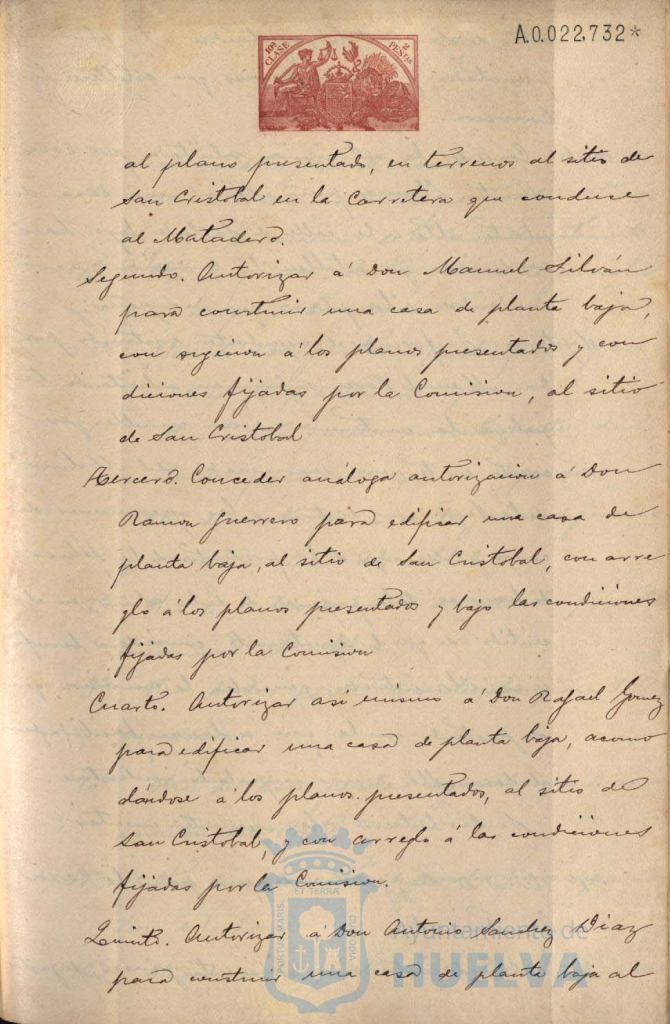 A.0.022.732*
10ª CLASE
2 PESETAS
al plano presentado, en terrenos al sitio de
San Cristobal en la Carretera que conduce
al Matadero.
Segundo. Autorizar á Don Manuel Silván
para construir una casa de planta baja,
con sujecion á los planos presentados y con
diciones fijadas por la Comision, al sitio
de San Cristobal
Tercero. Conceder análoga autorizacion á Don
Ramon Guerrero para edificar una casa de
planta baja, al sitio de San Cristobal, con arre
glo á los planos presentados y bajo las condiciones
fijadas por la Comision
Cuarto. Autorizar asi mismo á Don Rafael Gomez
para edificar una casa de planta baja, acomo
dándose á los planos presentados, al sitio de
San Cristobal, y con arreglo á las condiciones
fijadas por la Comision.
Quinto. Autorizar á Don Antonio Sanchez Diaz
para construir una casa de planta baja al
Ayuntamiento de
HUELVA